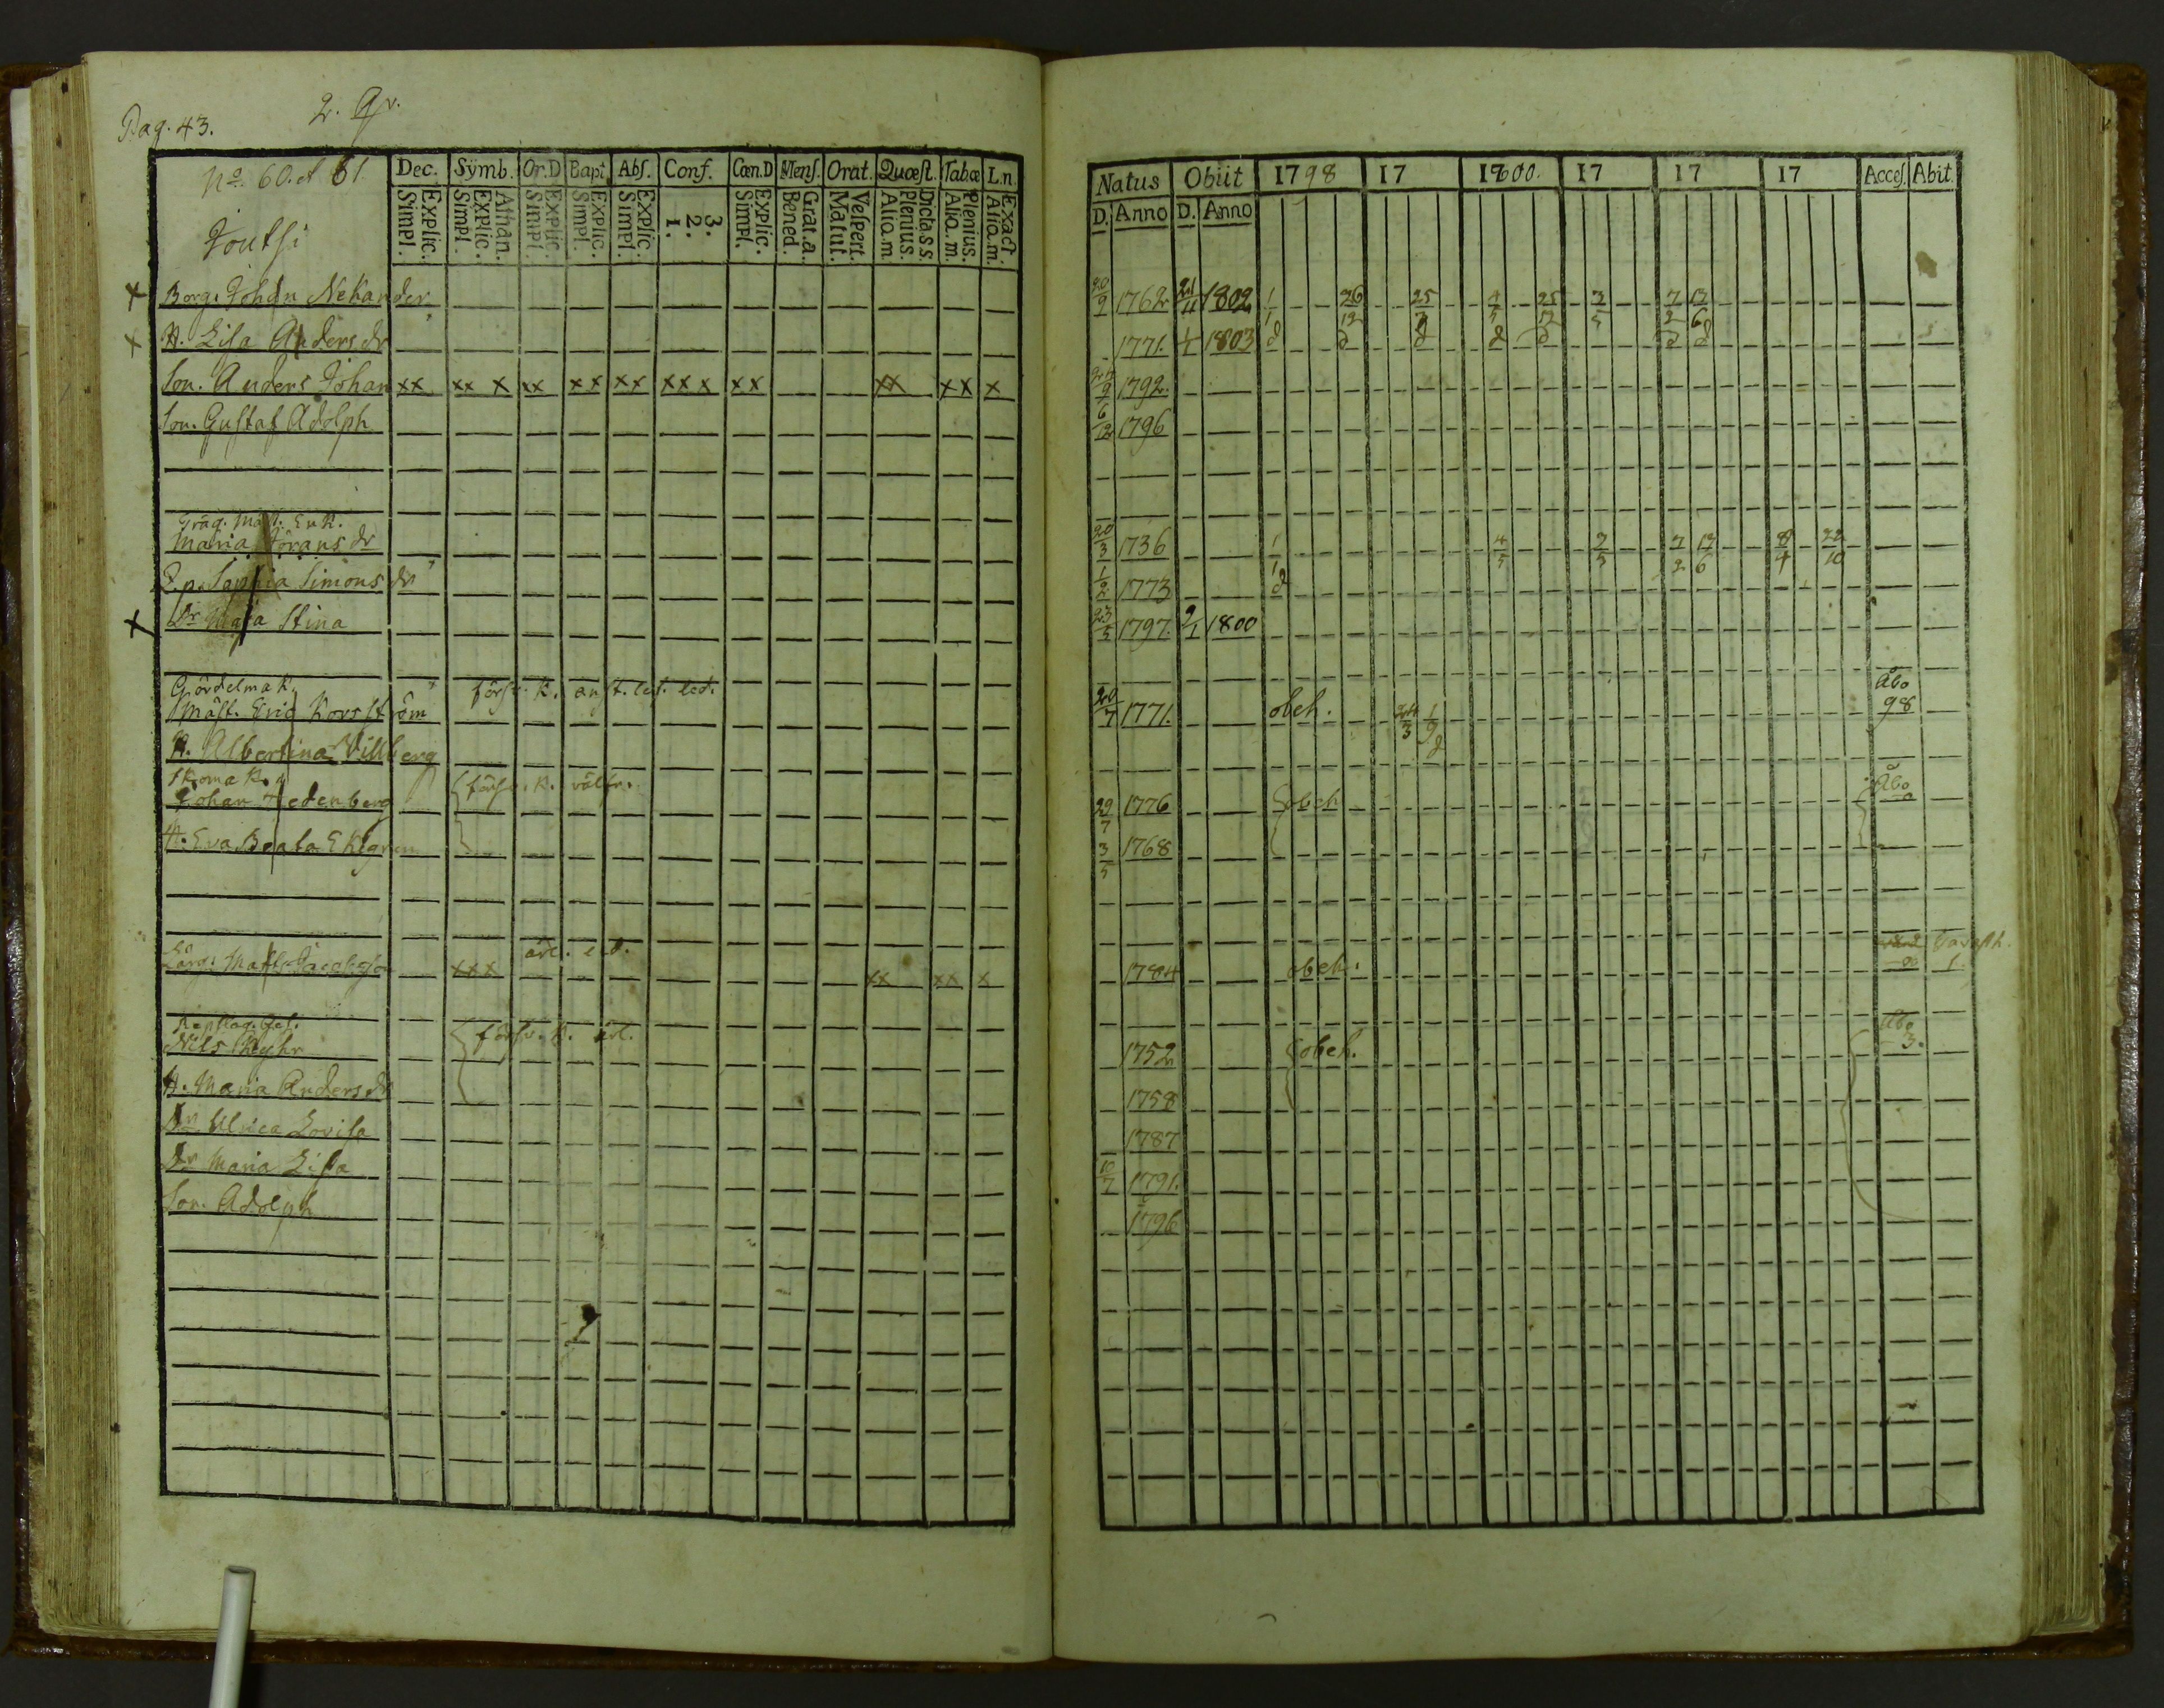 Pag. 43.
2. Qv.
No. 60. et 61.
Joutsi
Dec. Symb. Or.D Bapt. Abs. Conf. Cœn.D Mens. Orat. Quæst. Tabæ L.n.
Explic. Simpl. Athan. Explic. Simpl. Explic. Simpl. Explic. Simpl. Explic. Simpl. 3. 2. 1. Explic. Simpl. Grat.a. Bened. Vespert. Matut. Dicta s.s. Plenius. Alio.m. Plenius. Alio.m. Exact. Alio.m.
Borg. Johan Nekander
H. Lisa Anders dr
Son. Anders Johan xx xx x xx xx xx xxx xx xx xx x
Son. Gustaf Adolph
Gråg. Mäst. Enk.
Maria Jörans dr
E.p. Sophia Simons dr
Dr Maja Stina
Gördelmak.
Mäst. Eric Korsström försv. k. anst. led.
H. Albertina Villberg
Skomak.
Johan Hedenberg försv. k. välfr.
H. Eva Beata Ekegren
ärl. led.
Lärg. Matts Jacobsson xxx xx xx x
Repslag. Ges.
Nils Ryhr försv. k. ärl.
H. Maria Anders dr
Dr Ulrica Lovisa
Dr Maria Lisa
Son. Adolph
Natus Obiit 1798 17 1800. 17 17 17 Acces. Abit.
D. Anno D. Anno
20/9 1762 21/11 1802 1/1 26/12 25/3 4/5 25/12 3/5 7/2 13/6
1771. 1/1 1803 d d d d d d d
24/9 1792.
6/12 1796
20/3 1736 1/1 4/5 3/5 7/2 13/6 8/4 22/10
1/2 1773 d
23/5 1797. 9/1 1800
20/7 1771. obeh. 24/3 1/9 d Åbo 98
29/7 1776 obeh Åbo
3/5 1768
1784 obeh.
1752 obeh. Åbo 3.
1758
1787
10/7 1791.
1796